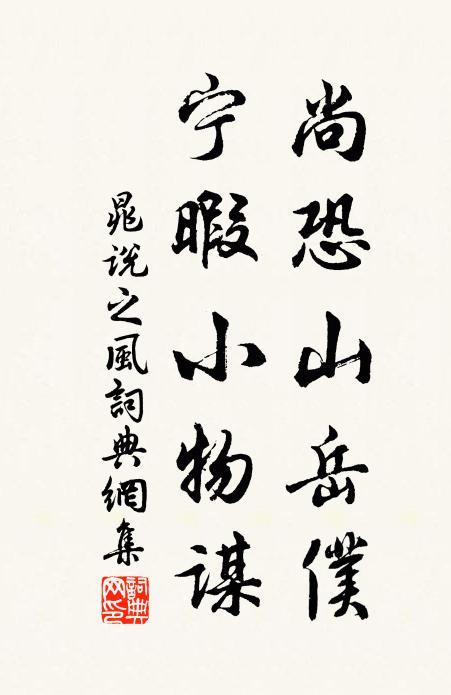 尚恐山岳僕
宁暇小物謀
晁说之風詞典網集
詞典网印